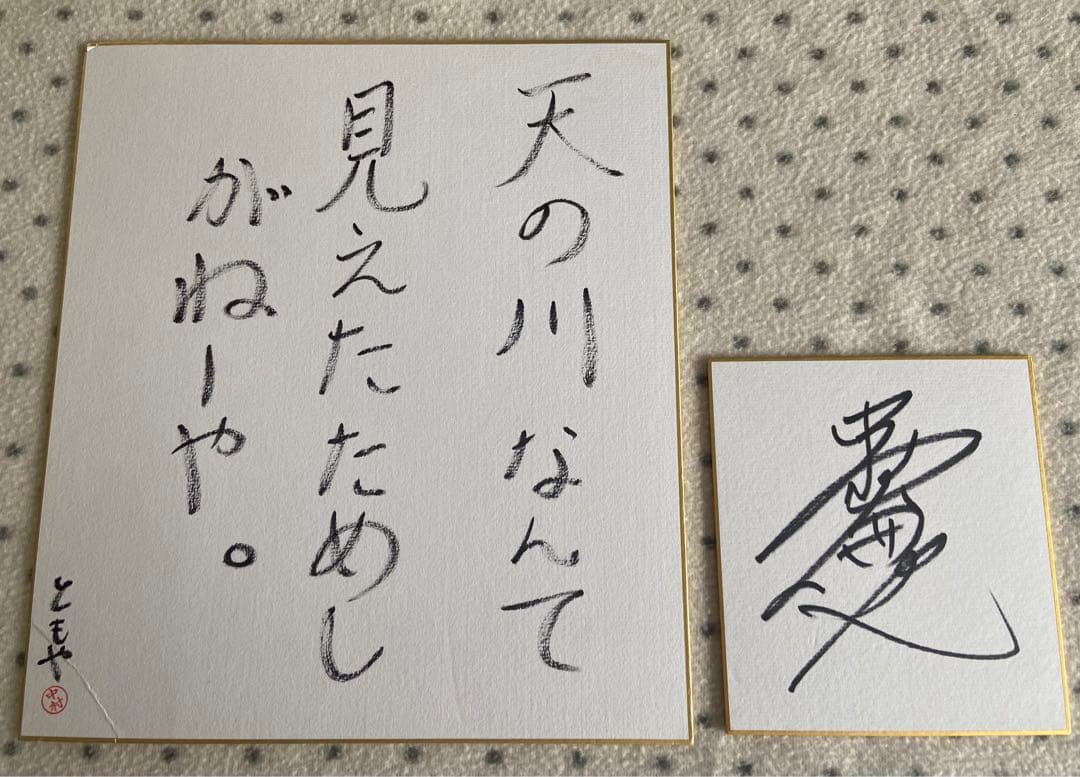 天の川なんて
見えたためし
がねーや。
ともや
中村